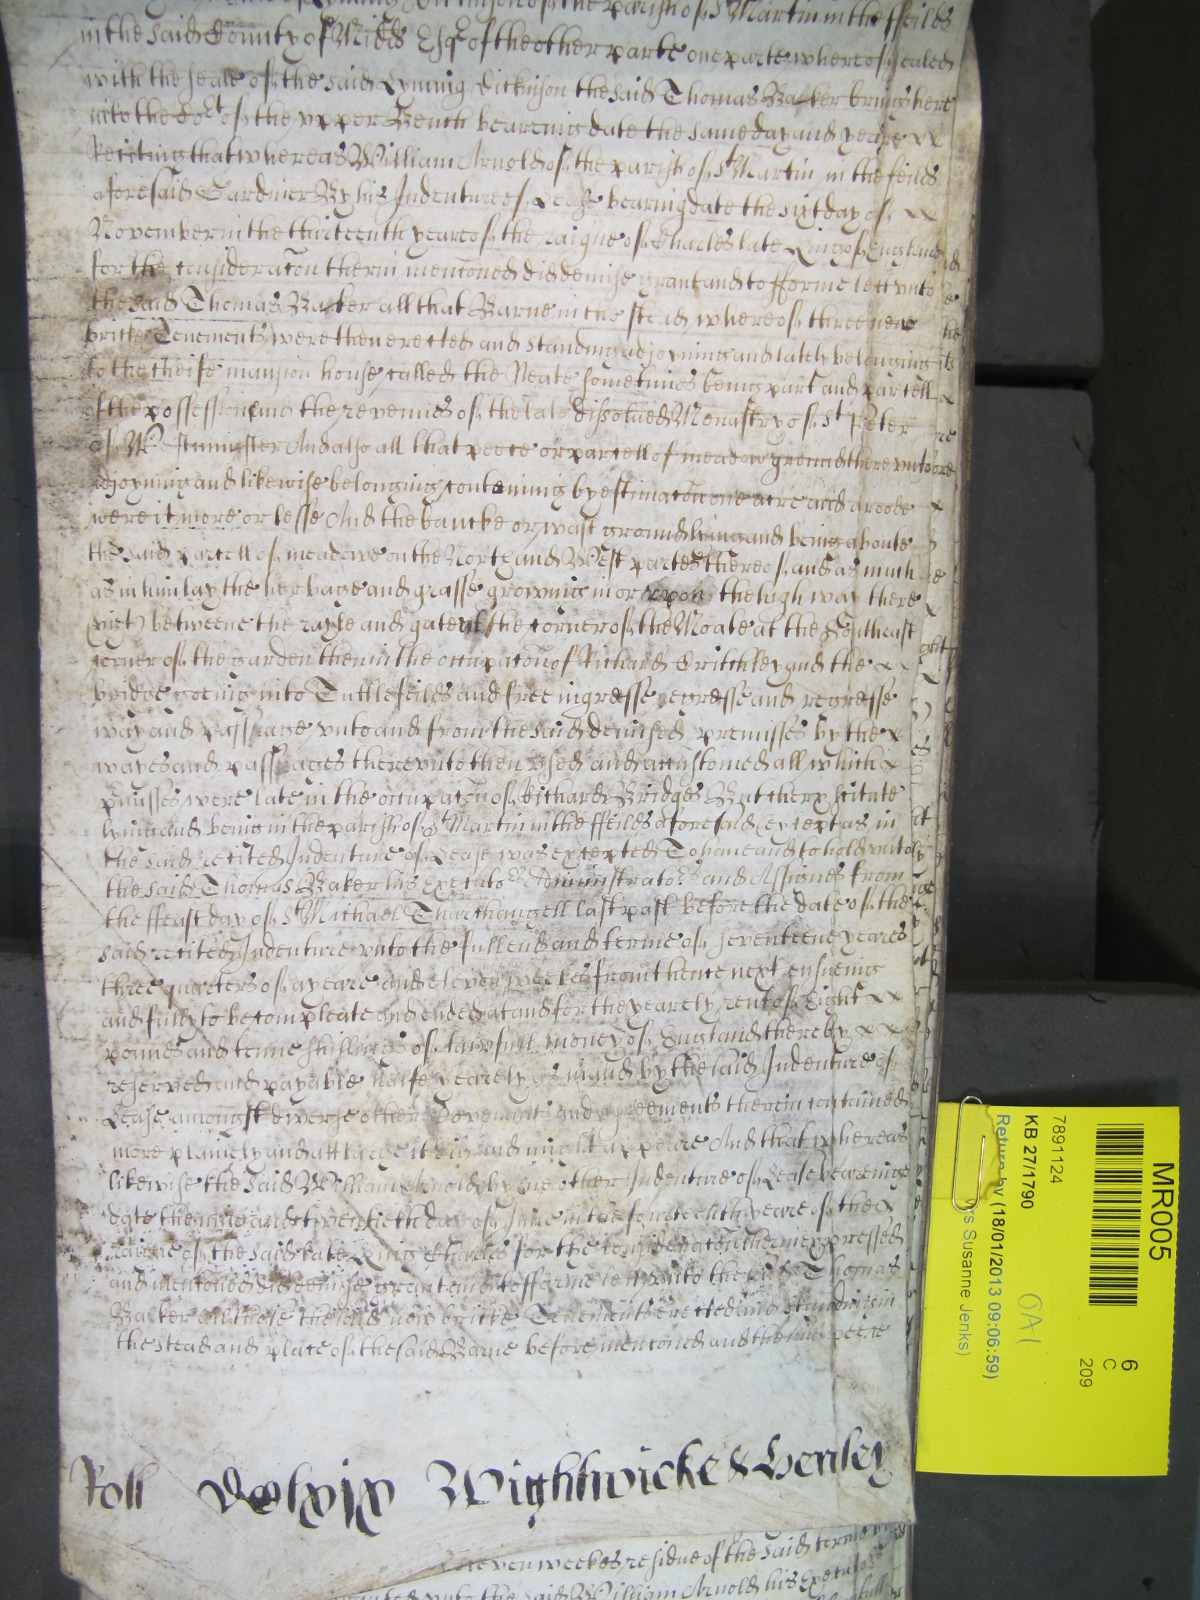 Dickinson of the parish of St Martin in the ffeilds
in the said County of Midds Esqr of the other parte one parte whereof sealed
with the seale of the said Lyming Dickinson the said Thomas Baker brings here
into the Cort of the vpper Bench beareing date the same day and yeare xx
Reciting that whereas William Arnold of the parish of St Martin in the feilds
aforesaid Gardiner By his Indenture of Lease bearing date the sixt day of xx
November in the thirteenth yeare of the raigne of Charles late King of England
for the consideracon therin menconed did demise grant and to fferme lett vnto
the said Thomas Baker all that Barne in the stead whereof three new
bricke Tenements were then erected and standing adjoyning and lately belonging
to the cheife mansion house called the Neate sometimes being part and parcell
of the possessions and the revenues of the late dissolued Monastry of St Peter
of Westminster And also all that peece or parcell of meadow ground there vnto
adjoyning and likewise belonging conteining by estimacon one acre and a roode
were it more or lesse And the bancke or wast ground lying and being aboute
the said parcell of meadowe on the North and West partes thereof and as much
as in him lay the herbage and grasse growing in or vpon the high way there
(vizt) betweene the rayle and gate at the corner of the Moate at the Southeast
corner of the garden then in the occupacon of Richard Critchley and the xx
bridge goeing into Tuttlefeilds and free ingresse egresse and regresse
way and passage vnto and from the said demised premisses by the x
wayes and passages therevnto then vsed and accustomed all which x
pmisses were late in the occupacon of Richard Bridges Butcher scituate
lying and being in the parish of St Martin in the ffeilds aforesaid (except as in
the said recited Indenture of Lease was excepted To haue and to hold vnto
the said Thomas Baker his Executors Administrators and Assignes from
the ffeast day of St Michael Tharchangell last past before the date of the
said recited Indenture vnto the full end and terme of seventeene yeares
three quarters of a yeare and eleven weekes from thence next ensueing
and fully to be compleate and ended at and for the yearely rent of Eight xx
pounds and tenne shillings of lawfull money of England thereby xx
reserved and payable halfe yearely as in and by the said Indenture of
Lease amongst diverse other Covenants and agreements therein contained
more plainely and att large it did and might appeare And that whereas
likewise the said William Arnold by one other Indenture of Lease beareing
date the nine and twentieth day of June in the fourteenth yeare of the x
raigne of the said late King Charles for the consideracon therin expressed
and menconed did demise grant and to fferme lett vnto the said Thomas
Baker all those the said new bricke Tenements erected and standing in
the stead and place of the said Barne before menconed and the said peece
Roll Wightwicke & Henley
eleven weekes residue of the said terme
vnto the said William Arnold his Executors
MR005
7891124
KB 27/1790
Return by (18/01/2013 09:06:59)
Mrs Susanne Jenks)
OA1
6
C
209